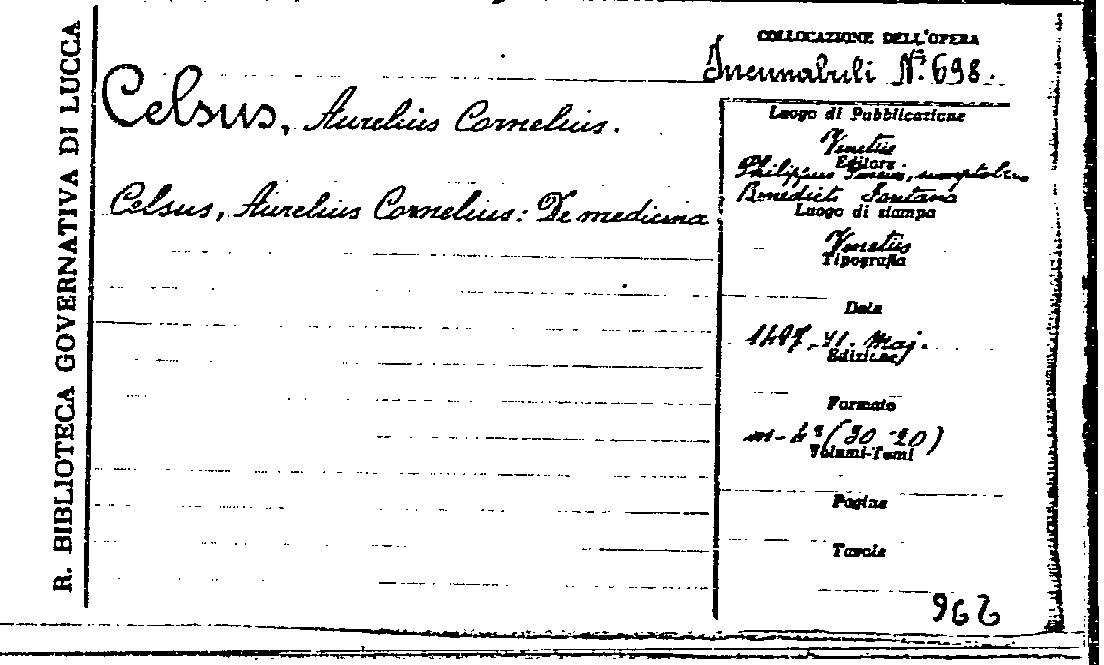 R. BIBLIOTECA GOVERNATIVA DI LUCCA
COLLOCAZIONE DELL'OPERA
Incunabuli N.º 698.
Celsus, Aurelius Cornelius.
Celsus, Aurelius Cornelius: De medicina
Luogo di Pubblicazione
Venetiis
Editore
Philippus Pincius, sumptibus
Benedicti Fontana
Luogo di stampa
Venetiis
Tipografia
Data
1497, VI. Maj.
Edizione
Formato
in-4º (30-20)
Volumi-Tomi
Pagine
Tavole
962